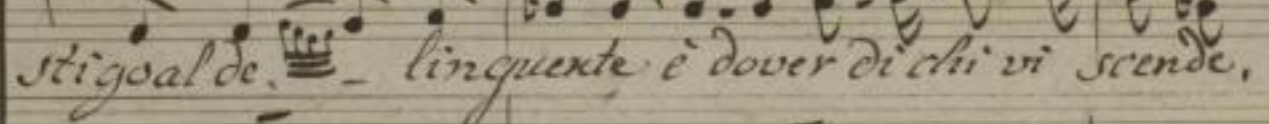 stigo al de - linquente è dover di chi vi scende,